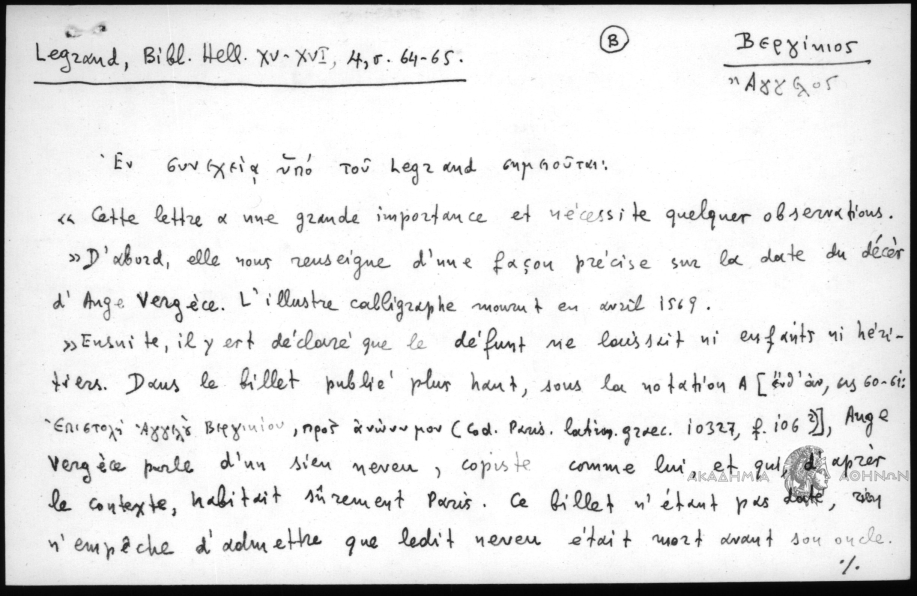 Legrand, Bibl. Hell. XV-XVI, 4, σ. 64-65.
Β
Βεργίκιος
Ἄγγελος
Ἐν συνεχείᾳ ὑπό τοῦ Legrand σημειοῦται:
« Cette lettre a une grande importance et nécessite quelques observations.
» D'abord, elle nous renseigne d'une façon précise sur la date du décès
d'Ange Vergèce. L'illustre calligraphe mourut en avril 1569.
» Ensuite, il y est déclaré que le défunt ne laissait ni enfants ni héri-
tiers. Dans le billet publié plus haut, sous la notation A [ἔνθ' ἀν, σς 60-61:
Ἐπιστολή Ἀγγέλου Βεργικίου, πρός ἀνώνυμον (Cod. Paris. latin. graec. 10327, f. 106 )], Ange
Vergèce parle d'un sien neveu, copiste comme lui, et qui, d'après
ΑΚΑΔΗΜΙΑ ΑΘΗΝΩΝ
le contexte, habitait sûrement Paris. Ce billet n'étant pas daté, rien
n'empêche d'admettre que ledit neveu était mort avant son oncle.
./.